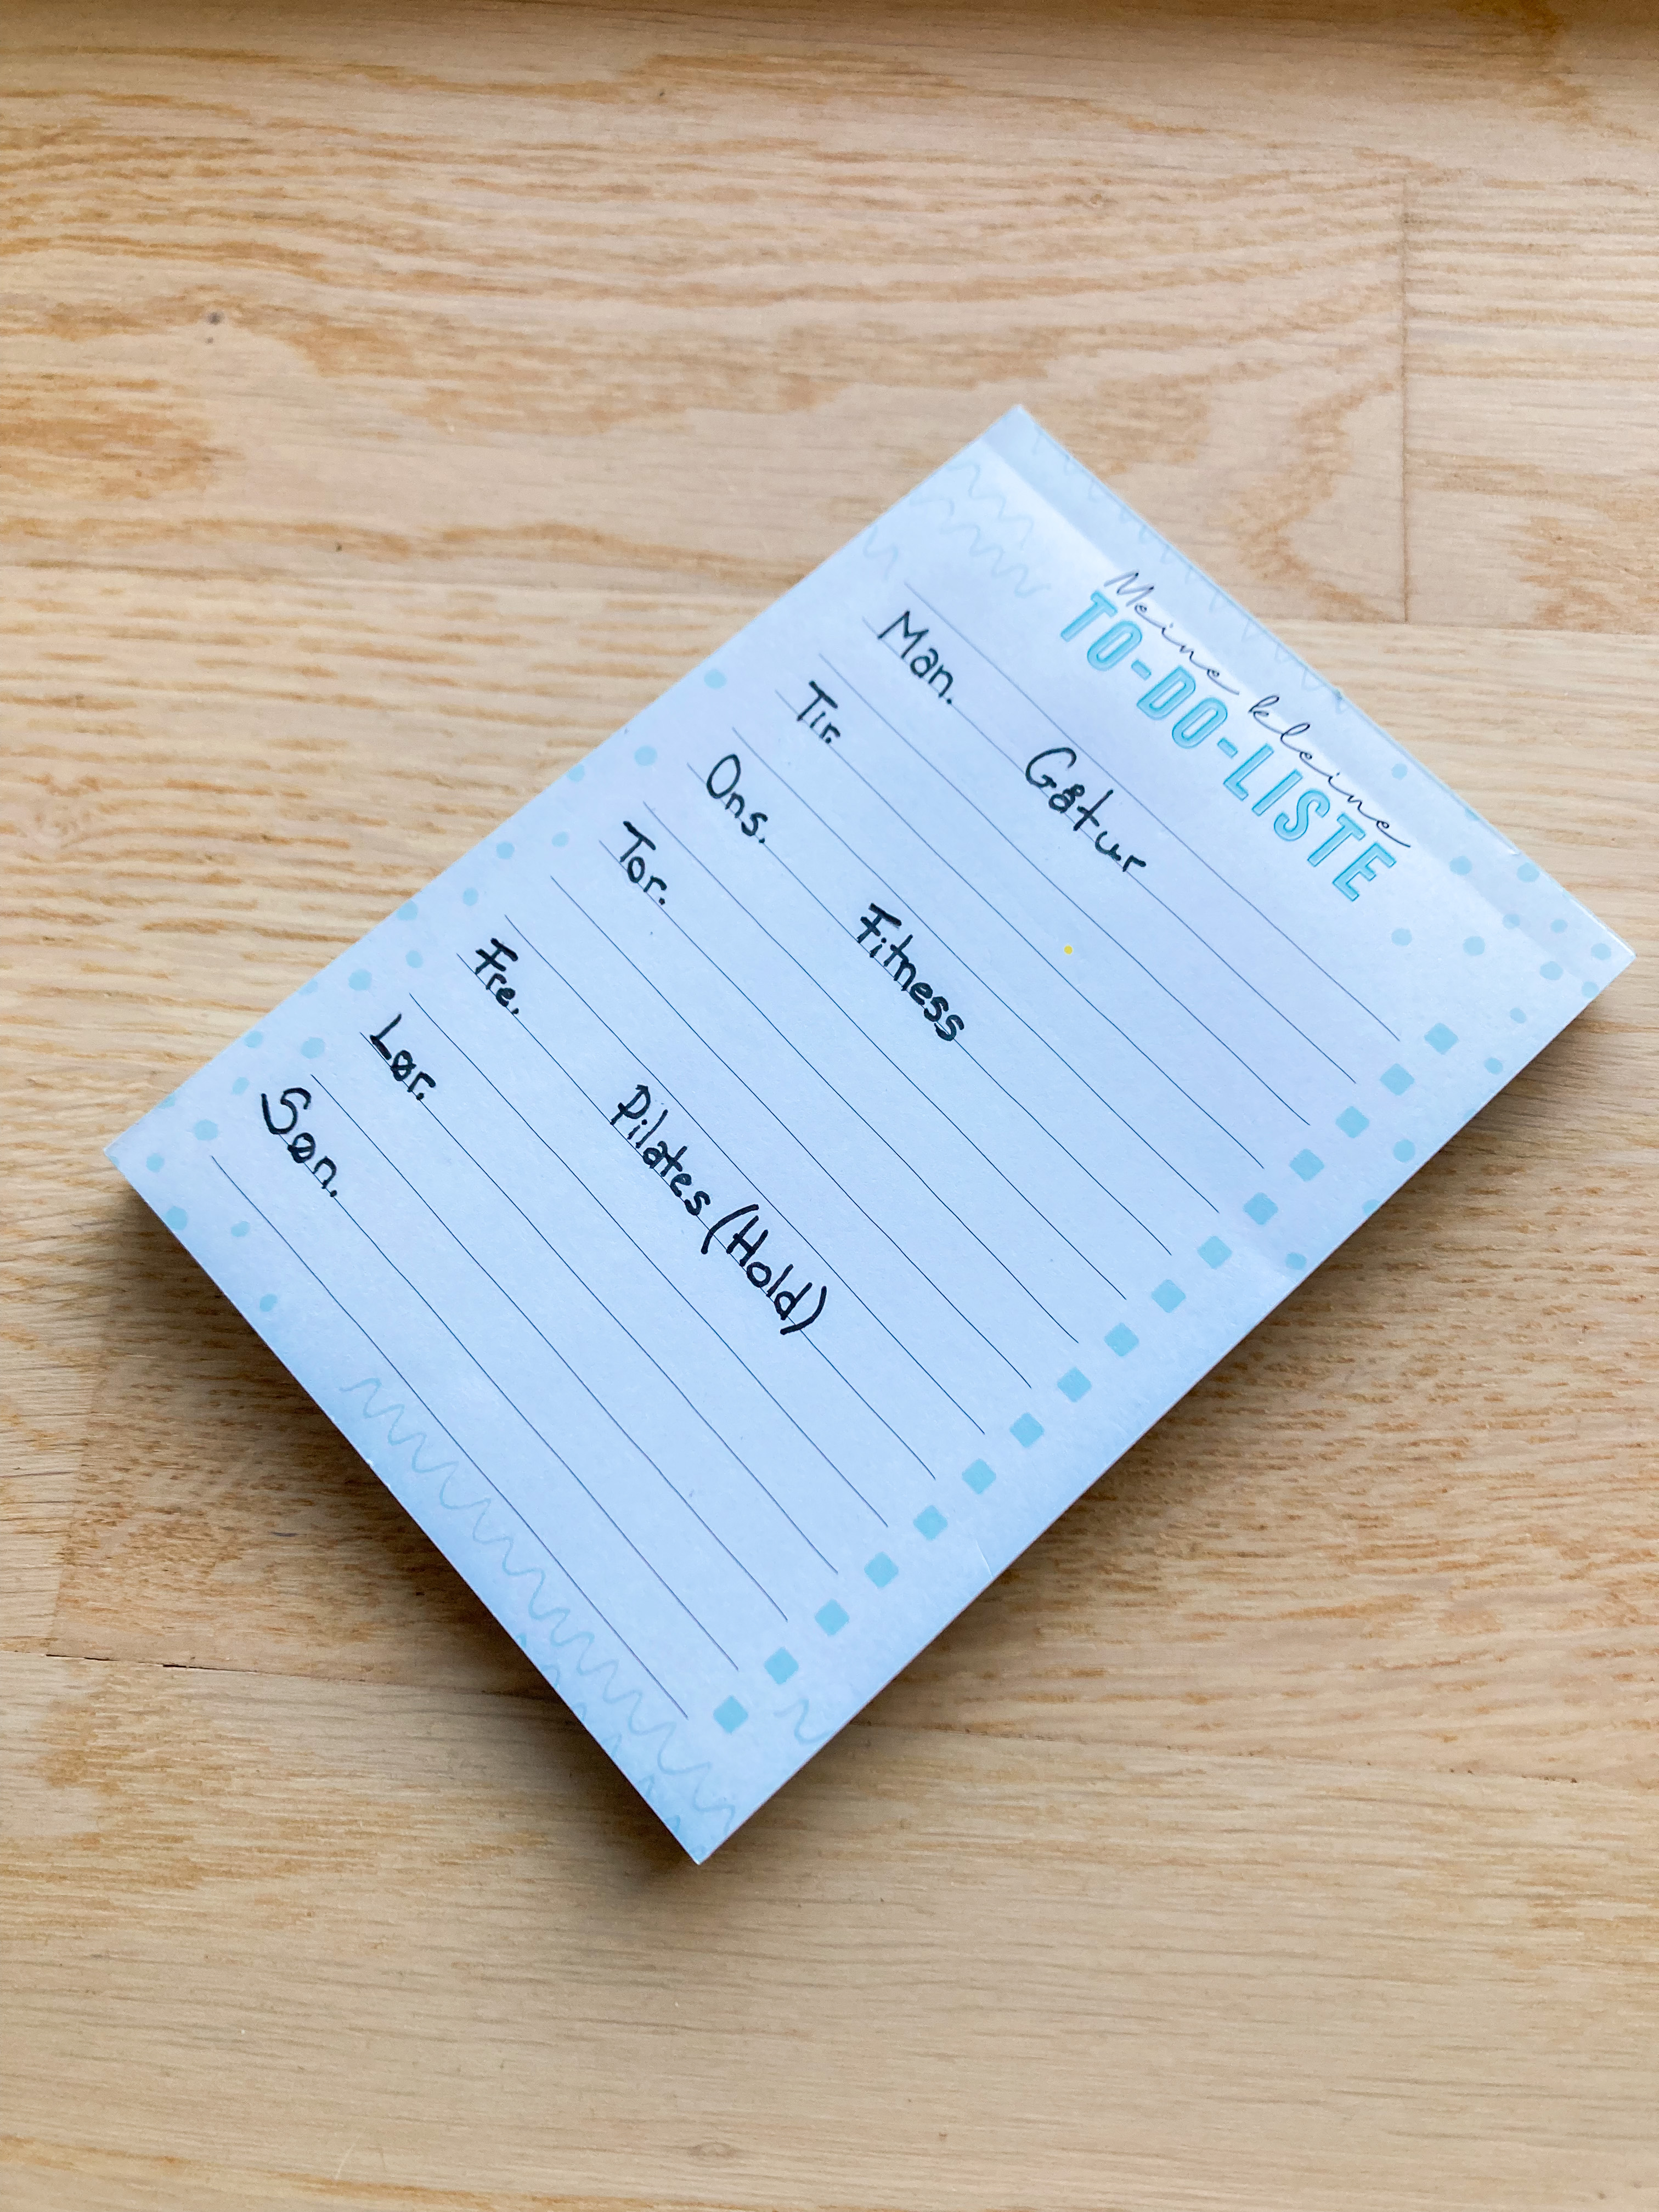 Meine kleine
TO-DO-LISTE
Man. Gåtur
Tir.
Ons. Fitness
Tor.
Fre. Pilates (Hold)
Lør.
Søn.